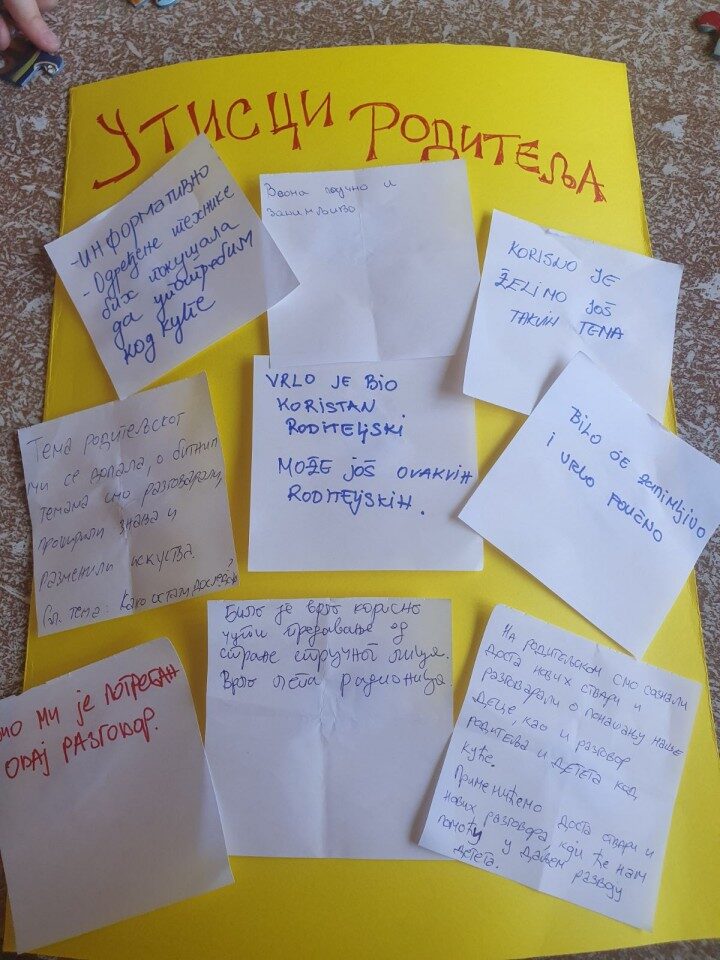 Утисци родитеља
-информативно
- Одређене технике
бих покушала
да употребим
код куће
Веома поучно и
занимљиво
KORISNO JE
ŽELIMO JOŠ
TAKVIH TEMA
Тема родитељског
ми се допала, о битним
темама смо разговарали,
проширили знања и
разменили искуства.
Сл. тема: Како остати доследан?
VRLO JE BIO
KORISTAN
RODITELJSKI
MOŽE JOŠ OVAKVIH
RODITELJSKIH.
BILO JE ZANIMLJIVO
I VRLO POUČNO
ио ми је потребан
овај разговор.
Било је врло корисно
чути предавање од
стране стручног лица.
Врло лепа радионица.
На родитељском смо сазнали
доста нових ствари и
разговарали о понашању наше
деце, као и разговор
родитеља и детета код
куће.
Применићемо доста ствари и
нових разговора, који ће нам
помоћи у даљем развоју
детета.